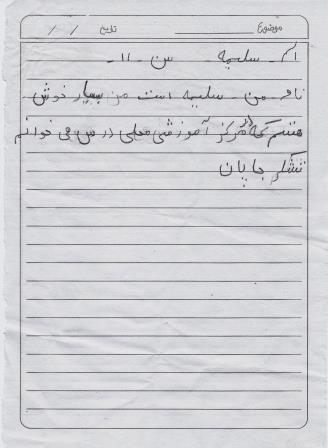 موضوع تاریخ / /
اسم - سلیمه سن - ۱۱ -
نام - من - سلیمه است من بسیار خوش
هستم که در مرکز آموزشی محلی درس می خوانم
تشکر جاپان